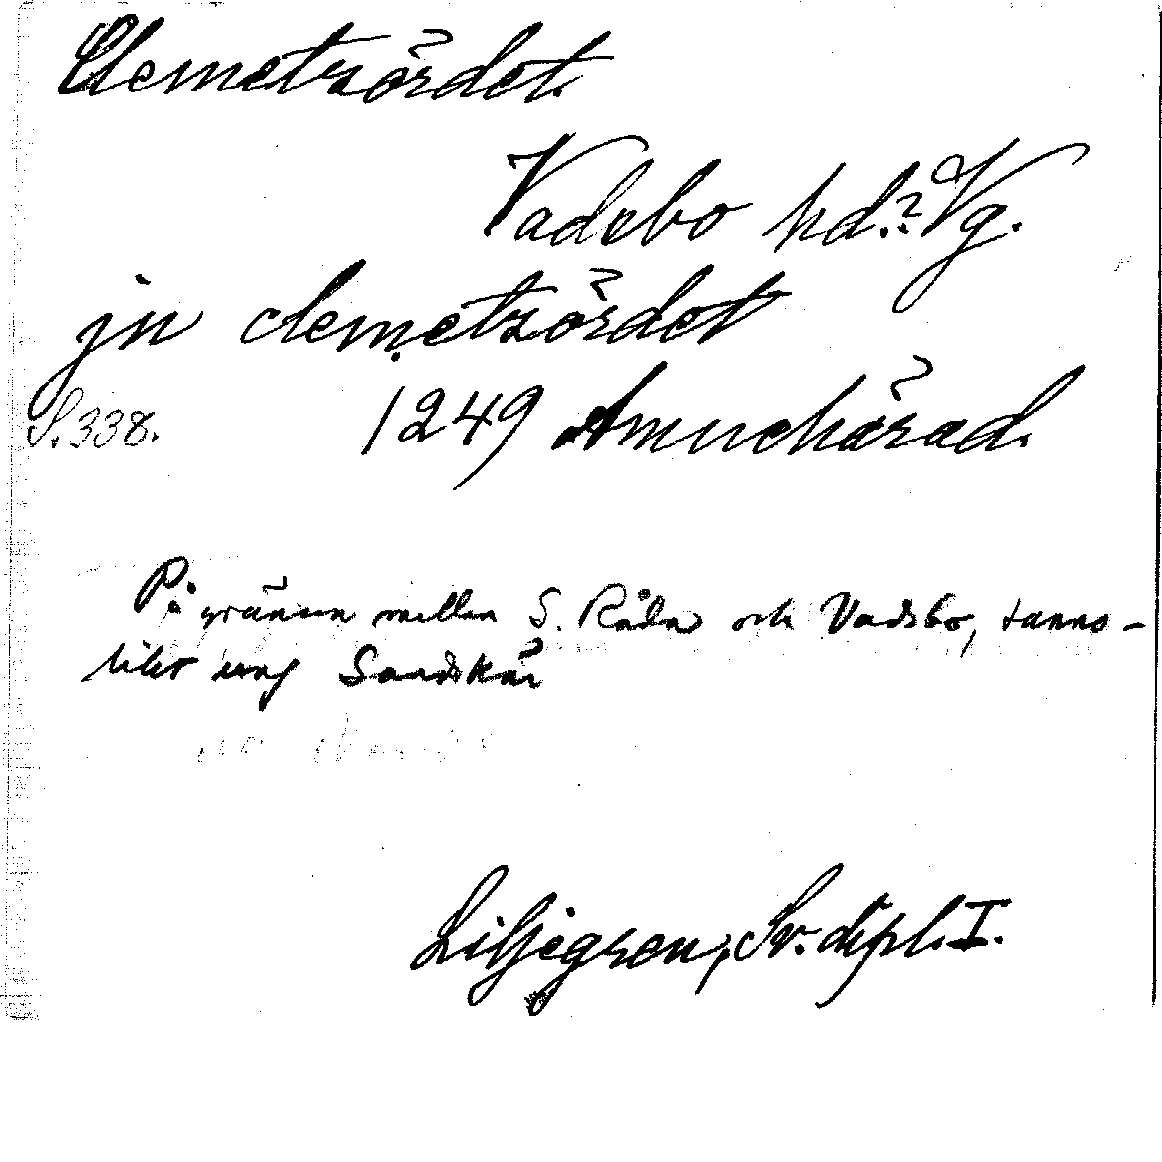 Clemetzördet.
Vadsbo hd.? Vg.
jn clemetzördet
S. 338. 1249 Amnehärad.
På gränsen mellan S. Råda och Vadsbo, sanno-
likt ung Sandskär
Liljegren, Sv. dipl. I.